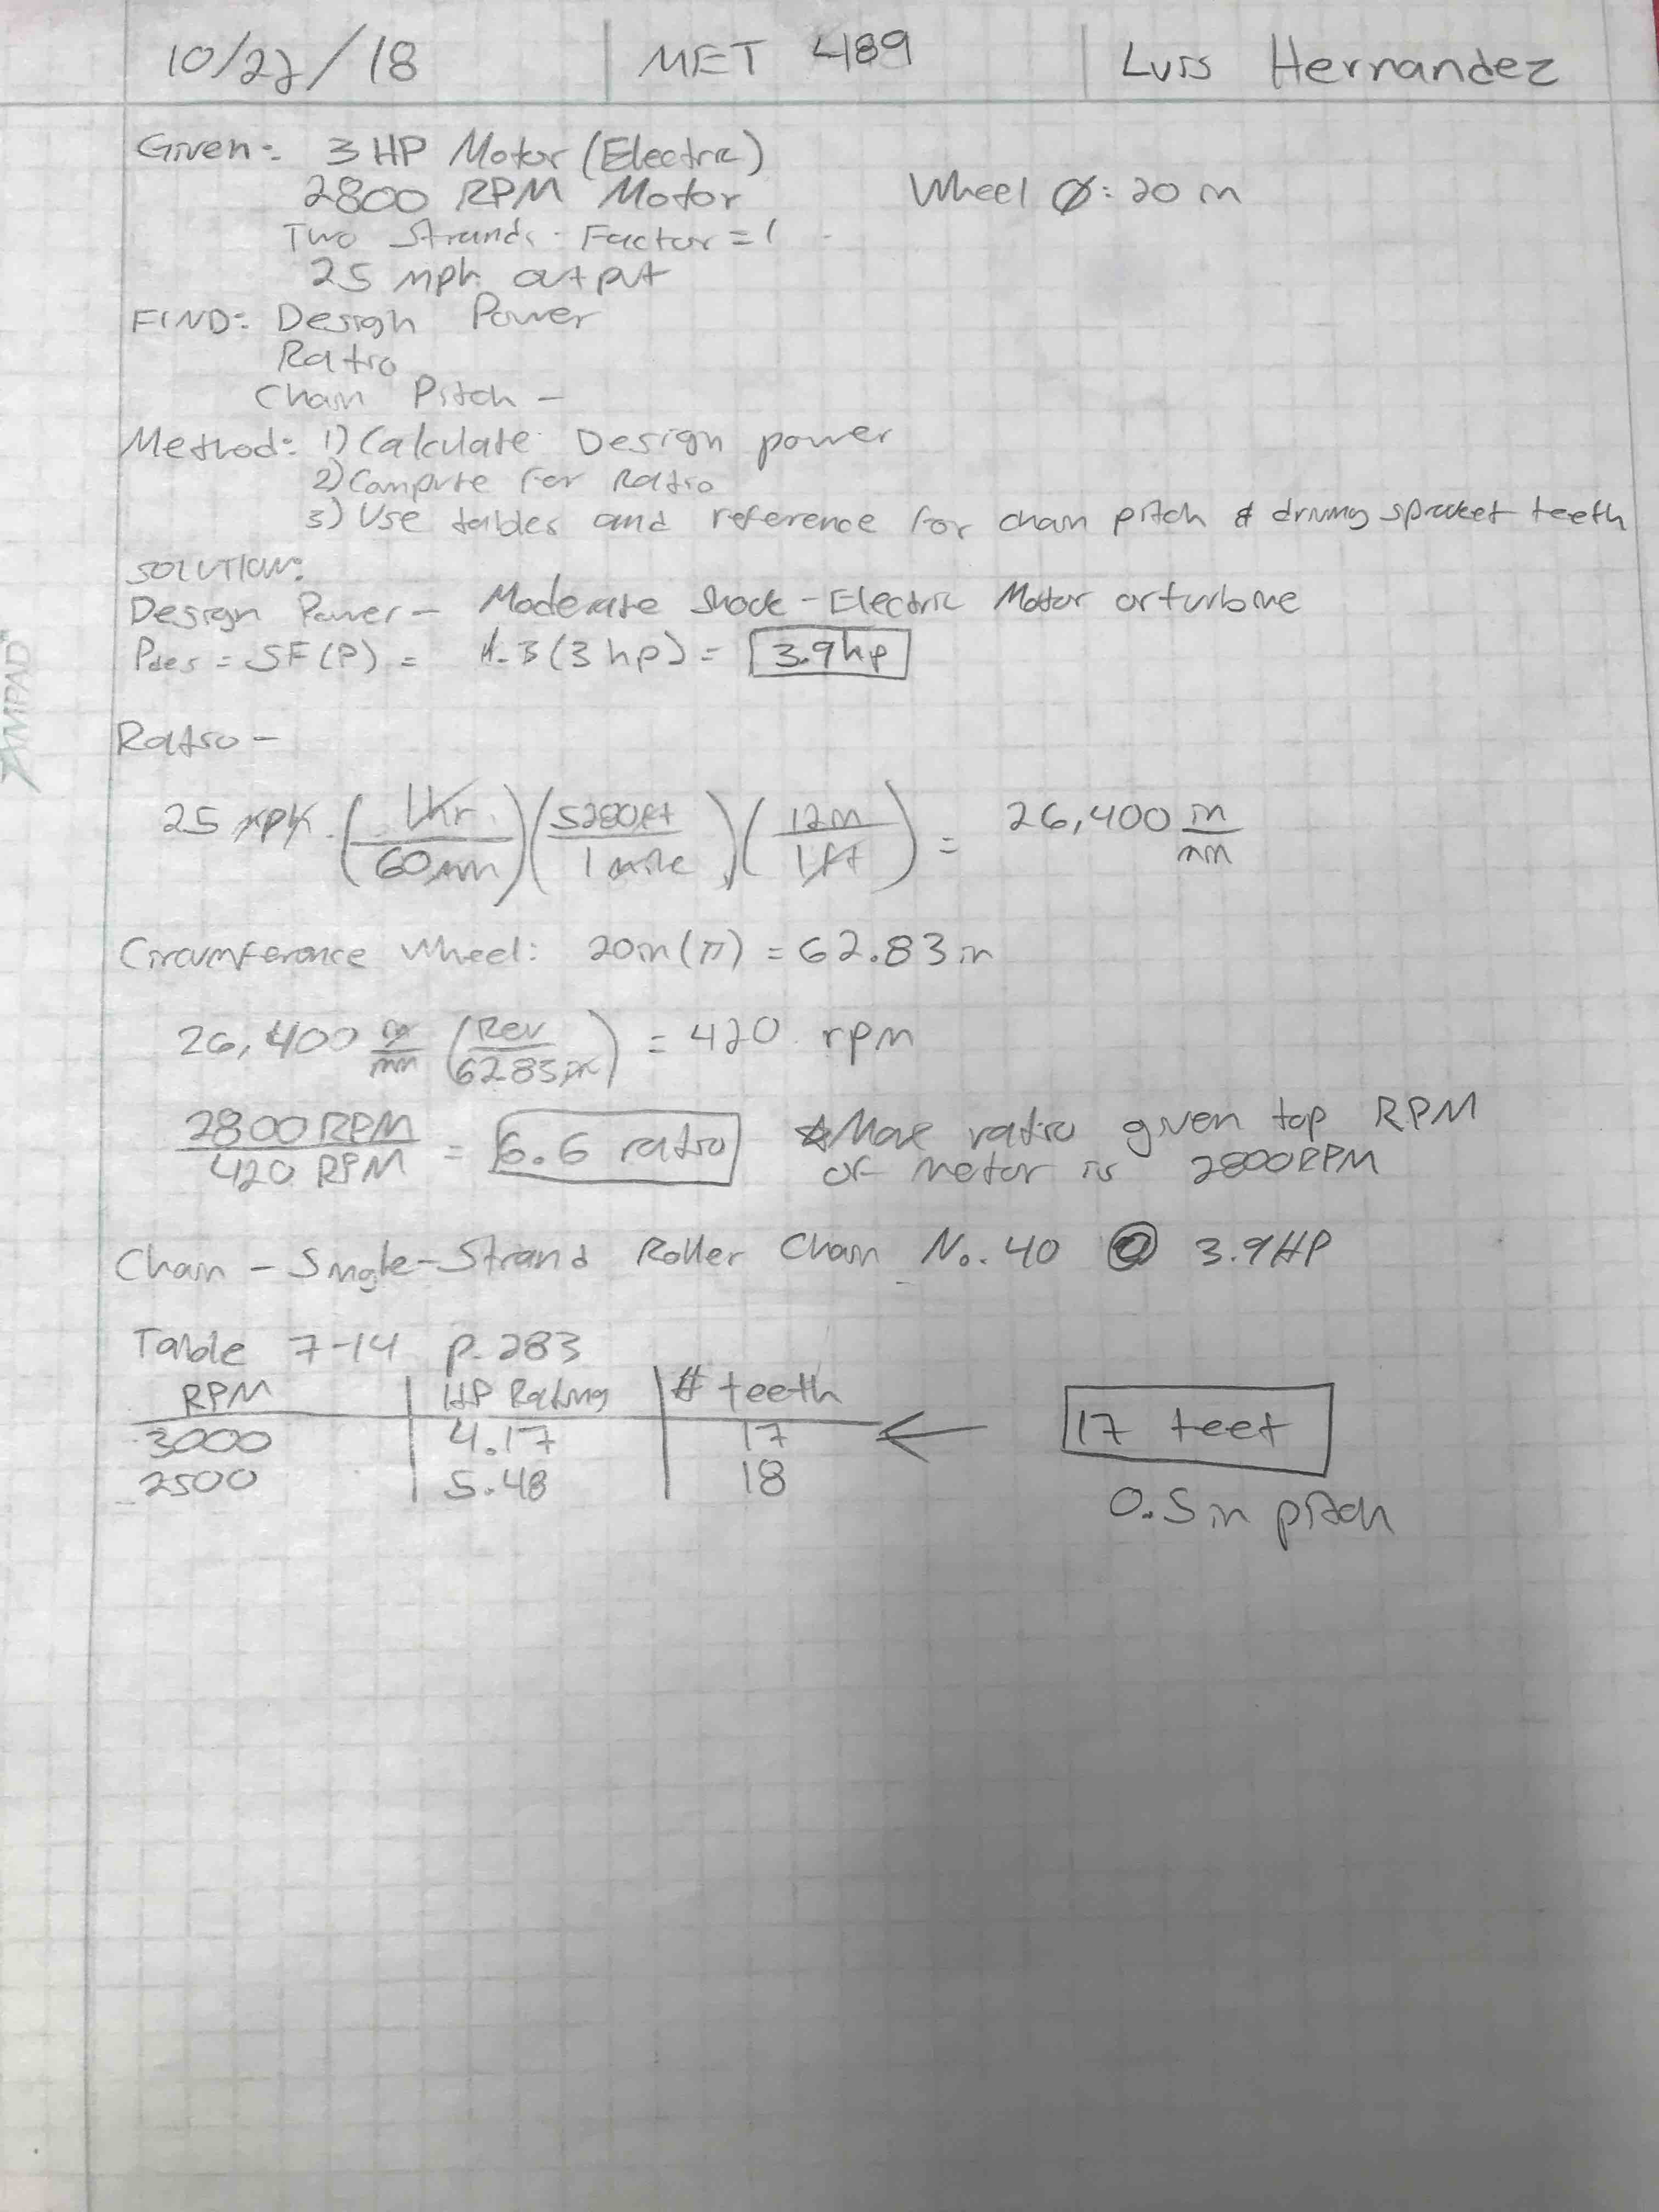 10/22/18 MET 489 Luis Hernandez
Given: 3 HP Motor (Electric)
2800 RPM Motor Wheel Ø: 20 in
Two Strands - Factor = 1
25 mph output
FIND: Design Power
Ratio
Chain Pitch -
Method: 1) Calculate Design power
2) Compute for Ratio
3) Use tables and reference for chain pitch & driving sprocket teeth
SOLUTION:
Design Power - Moderate Shock - Electric Motor or turbine
Pdes = SF(P) = 1.3 (3 hp) = 3.9 hp
AMPAD
Ratio -
25 mph (1hr/60min)(5280ft/1 mile)(12in/1ft) = 26,400 in/min
Circumference Wheel: 20in (π) = 62.83 in
26,400 in/min (Rev/62.83in) = 420 rpm
2800 RPM/420 RPM = 6.6 ratio ☆Max ratio given top RPM
of motor is 2800RPM
Chain - Single-Strand Roller Chain No. 40 @ 3.9 HP
Table 7-14 p. 283
RPM HP Rating # teeth
3000 4.17 17 ← 17 teet
2500 5.48 18
0.5 in pitch